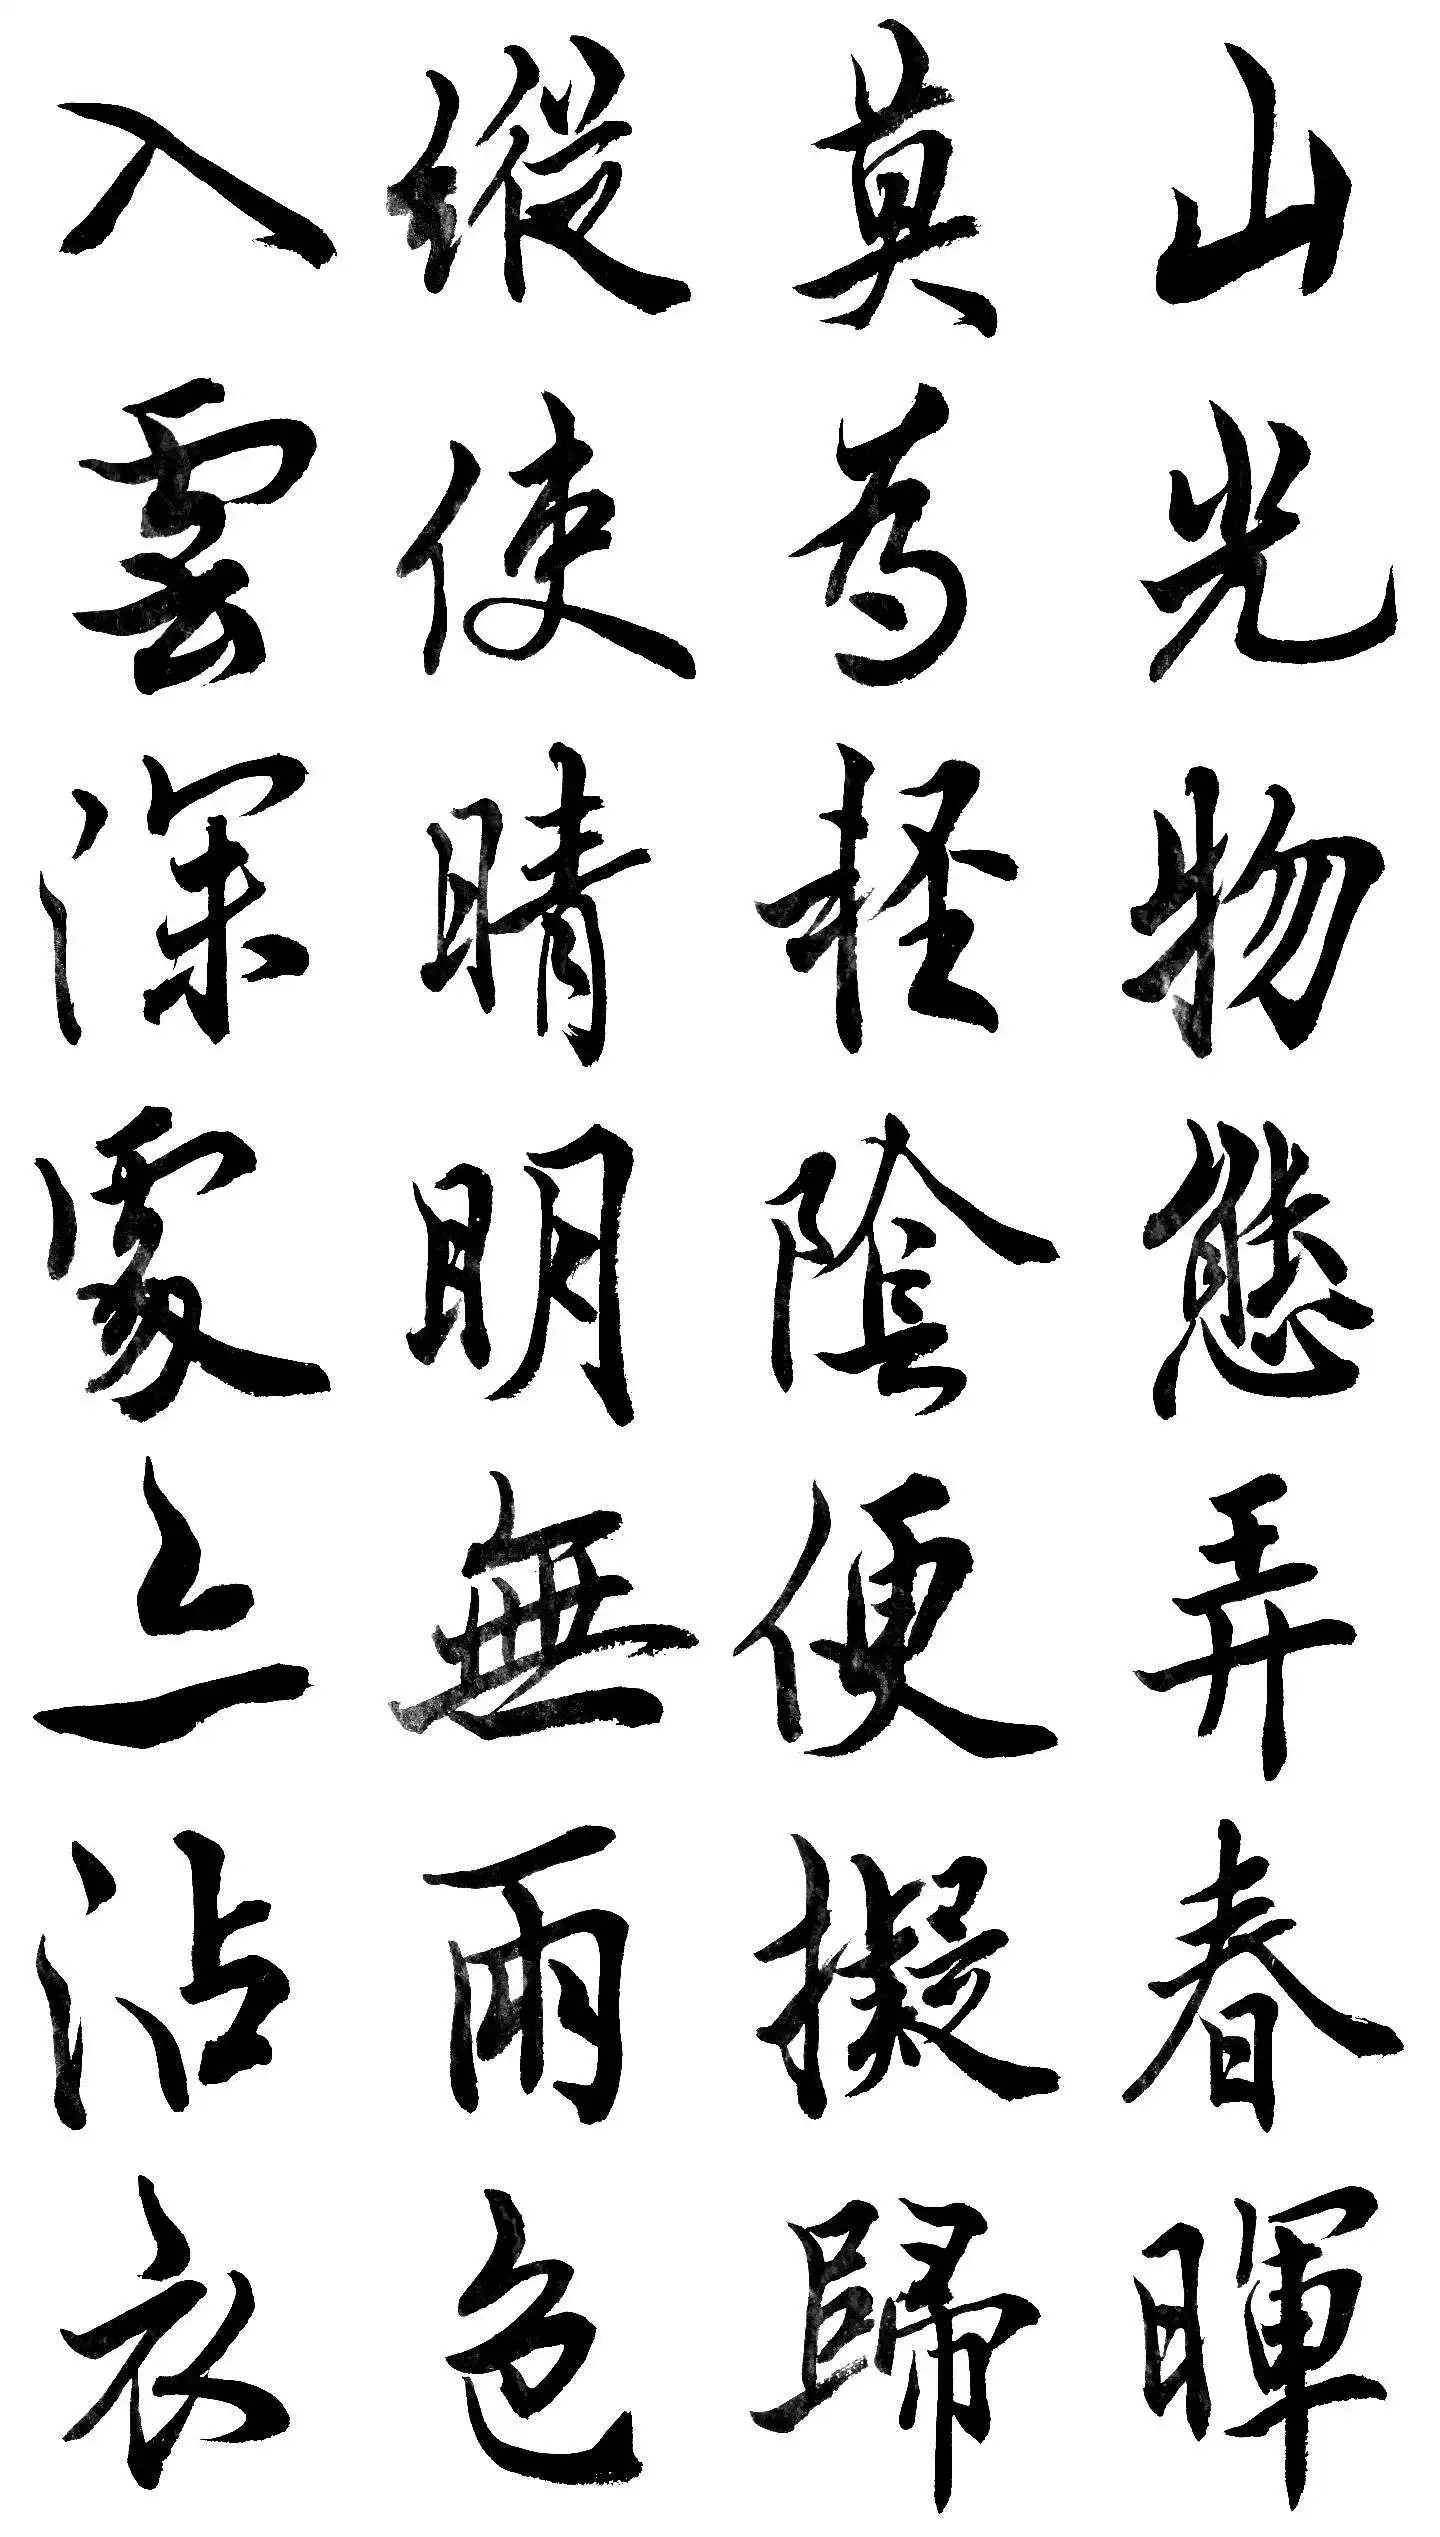 山光物態弄春暉
莫為軽陰便擬歸
縱使晴明無雨色
入雲深處亦沾衣